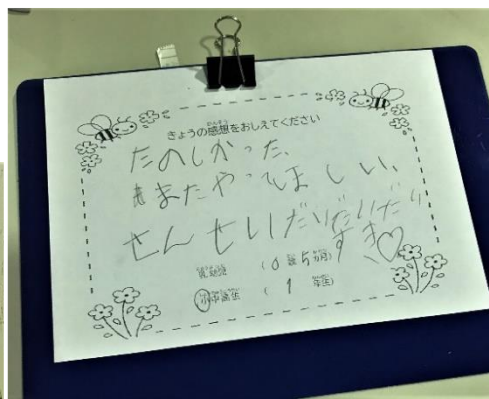 きょうの感想をおしえてください
たのしかった、
またやってほしい、
せんせいだいだいだい
すき♡
( 0 歳 5 カ月)
小中高生 ( 1 年生)